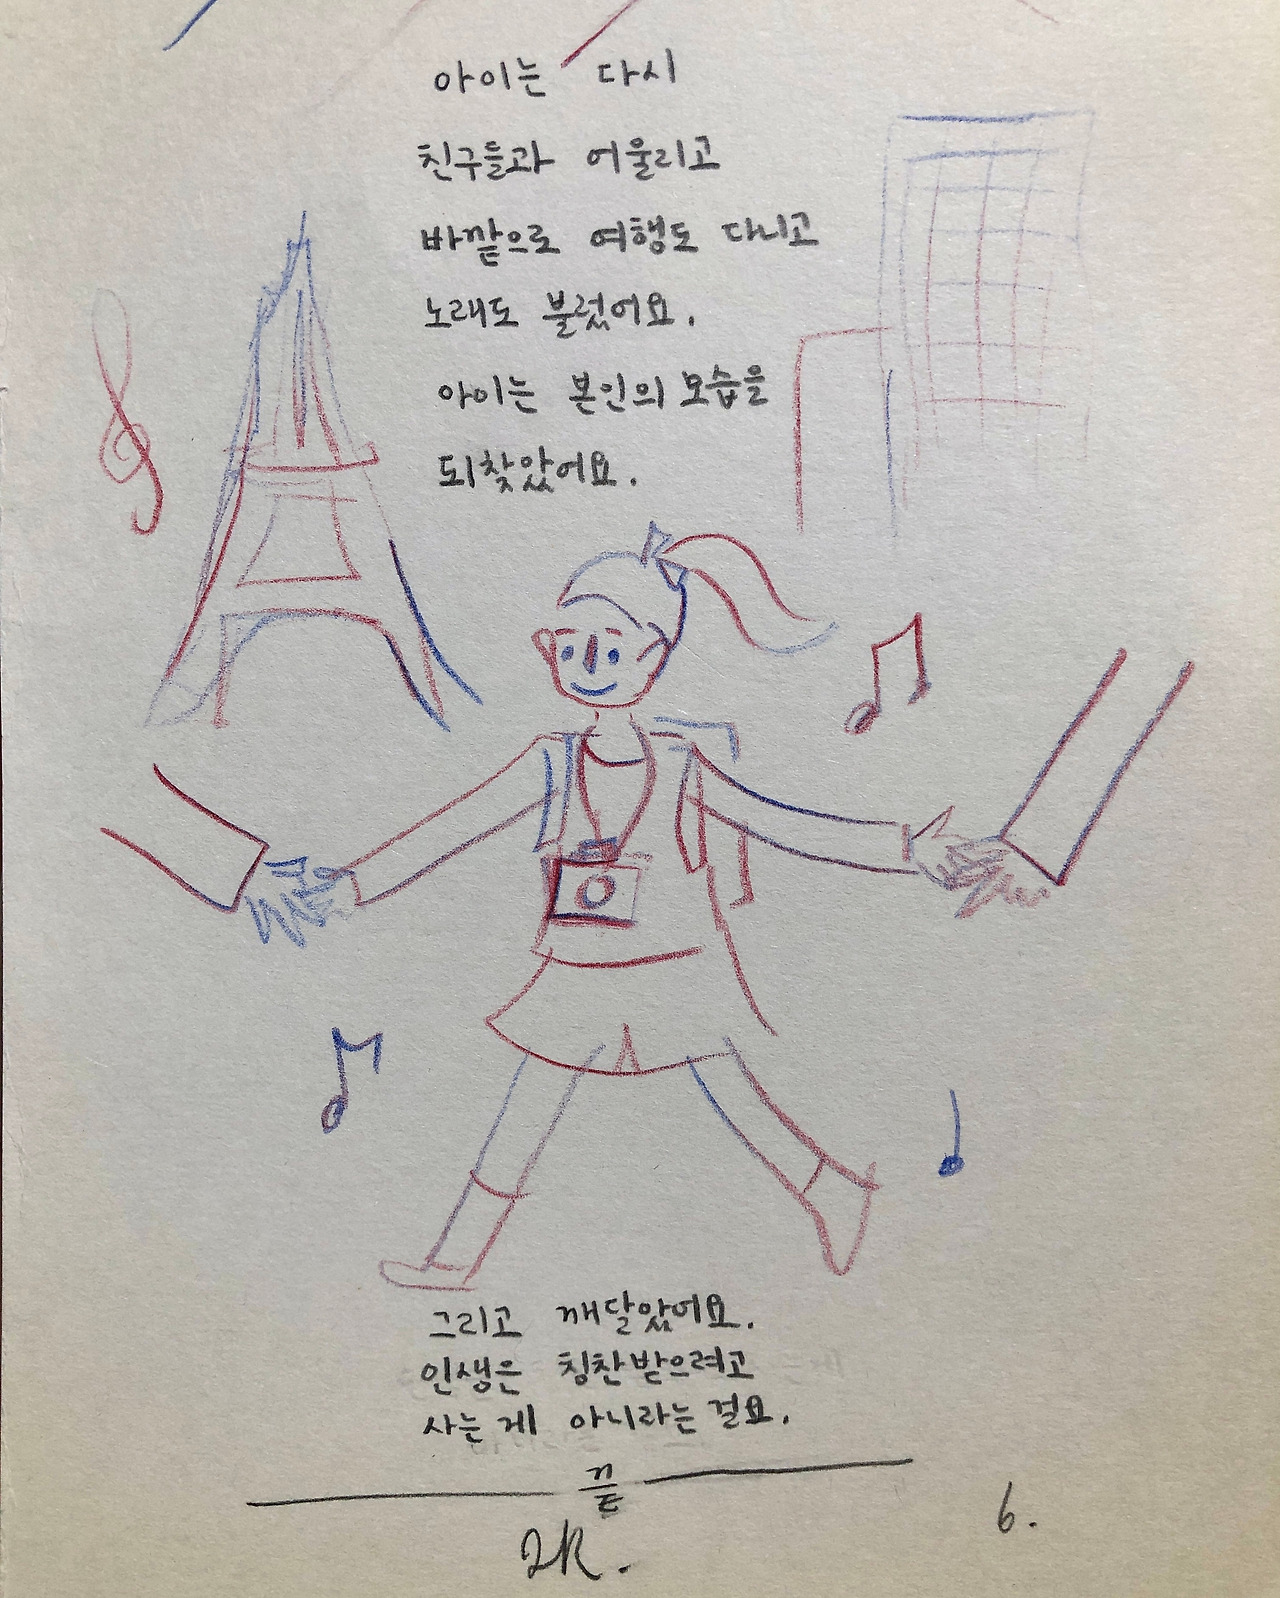 아이는 다시
친구들과 어울리고
바깥으로 여행도 다니고
노래도 불렀어요.
아이는 본인의 모습을
되찾았어요.
그리고 깨달았어요.
인생은 칭찬받으려고
사는 게 아니라는 걸요.
끝
6.